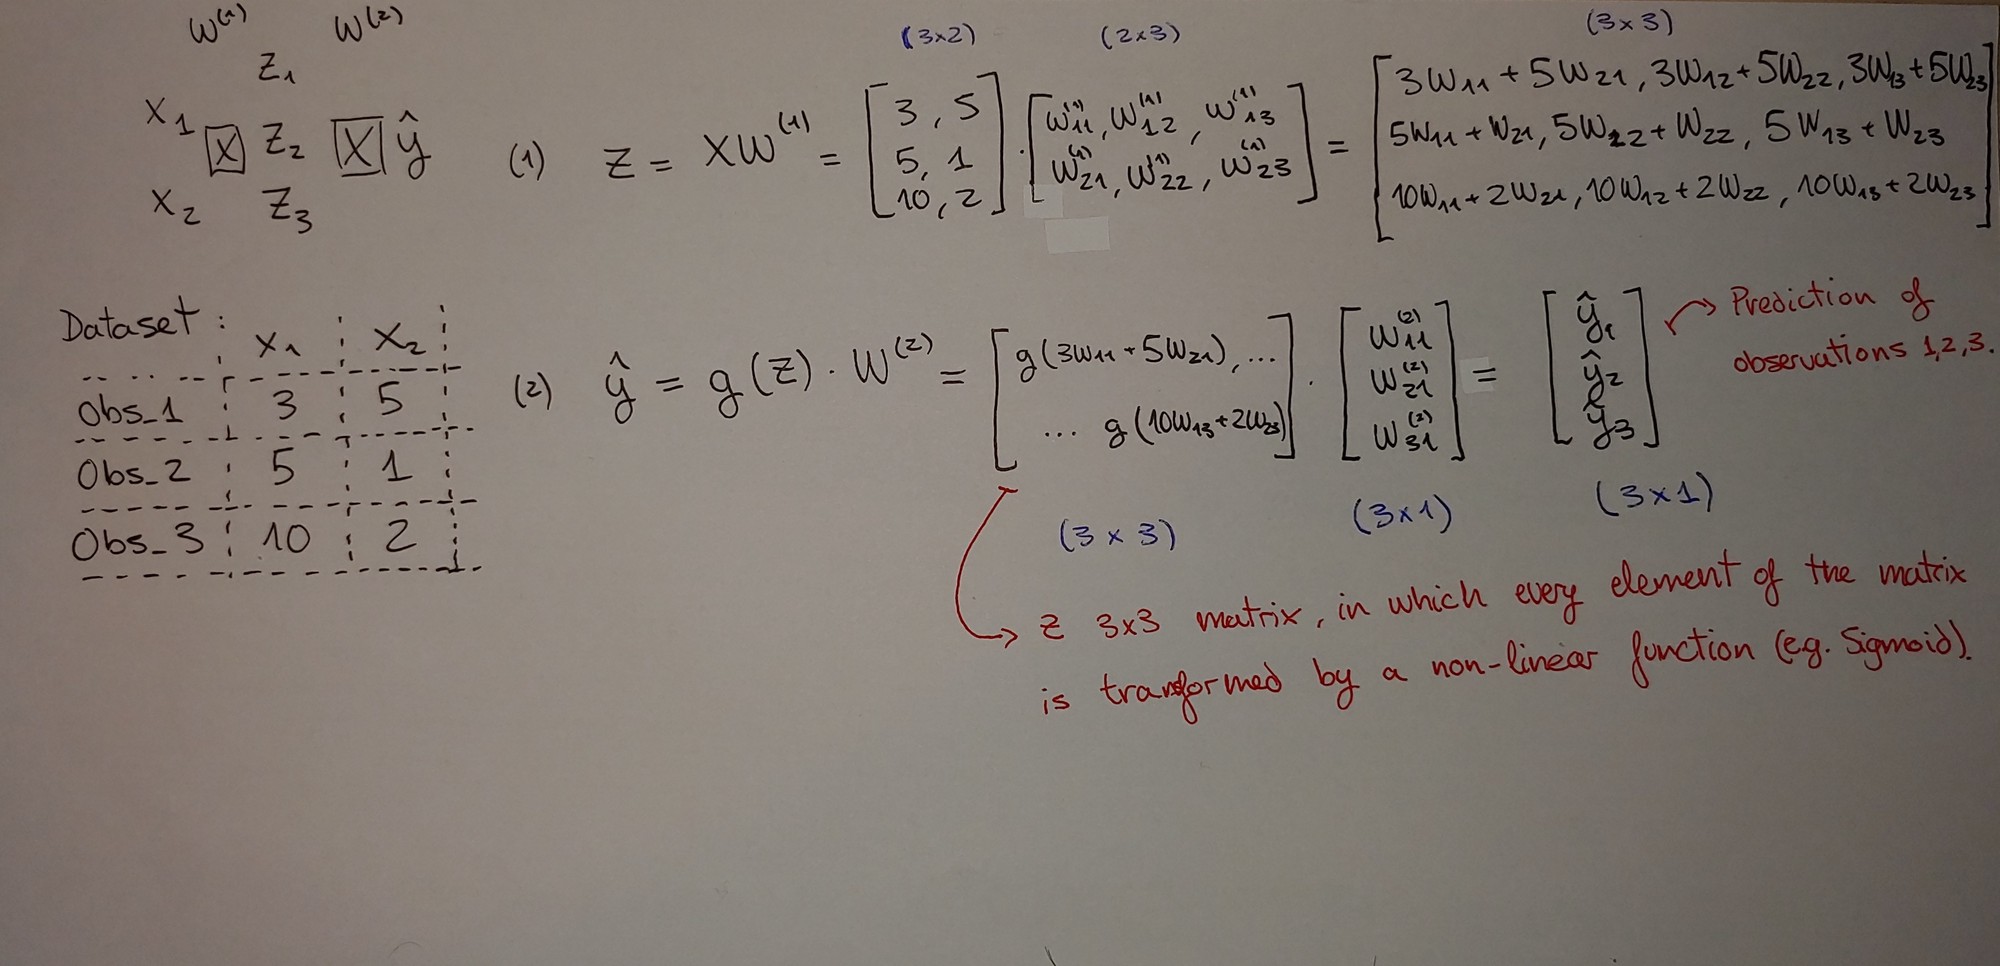 W⁽¹⁾ W⁽²⁾
z₁
x₁
X z₂ X ŷ
x₂ z₃
(3x2) (2x3) (3x3)
(1) Z = XW⁽¹⁾ = [3, 5; 5, 1; 10, 2] · [W₁₁⁽¹⁾, W₁₂⁽¹⁾, W₁₃⁽¹⁾; W₂₁⁽¹⁾, W₂₂⁽¹⁾, W₂₃⁽¹⁾] = [3W₁₁ + 5W₂₁, 3W₁₂ + 5W₂₂, 3W₁₃ + 5W₂₃; 5W₁₁ + W₂₁, 5W₁₂ + W₂₂, 5W₁₃ + W₂₃; 10W₁₁ + 2W₂₁, 10W₁₂ + 2W₂₂, 10W₁₃ + 2W₂₃]
Dataset:
x₁ x₂
Obs_1 3 5
Obs_2 5 1
Obs_3 10 2
(2) ŷ = g(z) · W⁽²⁾ = [g(3W₁₁ + 5W₂₁), ... ... g(10W₁₃+2W₂₃)] · [W₁₁⁽²⁾; W₂₁⁽²⁾; W₃₁⁽²⁾] = [ŷ₁; ŷ₂; ŷ₃]
Prediction of
observations 1,2,3.
(3 x 3) (3x1) (3x1)
z 3x3 matrix, in which every element of the matrix
is transformed by a non-linear function (eg. Sigmoid).